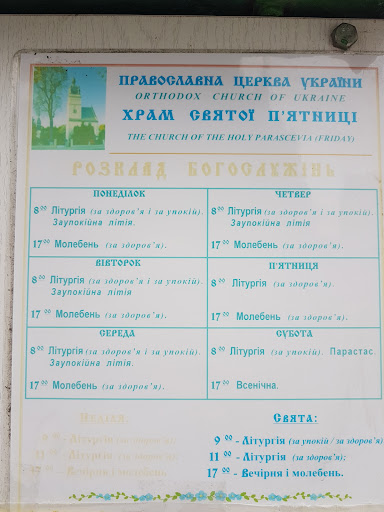 ПРАВОСЛАВНА ЦЕРКВА УКРАЇНИ
ORTHODOX CHURCH OF UKRAINE
ХРАМ СВЯТОЇ П'ЯТНИЦІ
THE CHURCH OF THE HOLY PARASCEVIA (FRIDAY)
РОЗКЛАД БОГОСЛУЖІНЬ
ПОНЕДІЛОК
8⁰⁰ Літургія (за здоров'я і за упокій).
Заупокійна літія.
17⁰⁰ Молебень (за здоров'я).
ВІВТОРОК
8⁰⁰ Літургія (за здоров'я і за упокій).
Заупокійна літія
17⁰⁰ Молебень (за здоров'я).
СЕРЕДА
8⁰⁰ Літургія (за здоров'я і за упокій).
Заупокійна літія.
17⁰⁰ Молебень (за здоров'я).
ЧЕТВЕР
8⁰⁰ Літургія (за здоров'я і за упокій).
Заупокійна літія
17⁰⁰ Молебень (за здоров'я).
П'ЯТНИЦЯ
8⁰⁰ Літургія (за здоров'я).
17⁰⁰ Молебень (за здоров'я).
СУБОТА
8⁰⁰ Літургія (за упокій). Парастас.
17⁰⁰ Всенічна.
Неділя:
9⁰⁰ - Літургія (за здоров'я);
11⁰⁰ - Літургія (за здоров'я);
17⁰⁰ - Вечірня і молебень.
Свята:
9⁰⁰ - Літургія (за упокій / за здоров'я)
11⁰⁰ - Літургія (за здоров'я);
17⁰⁰ - Вечірня і молебень.